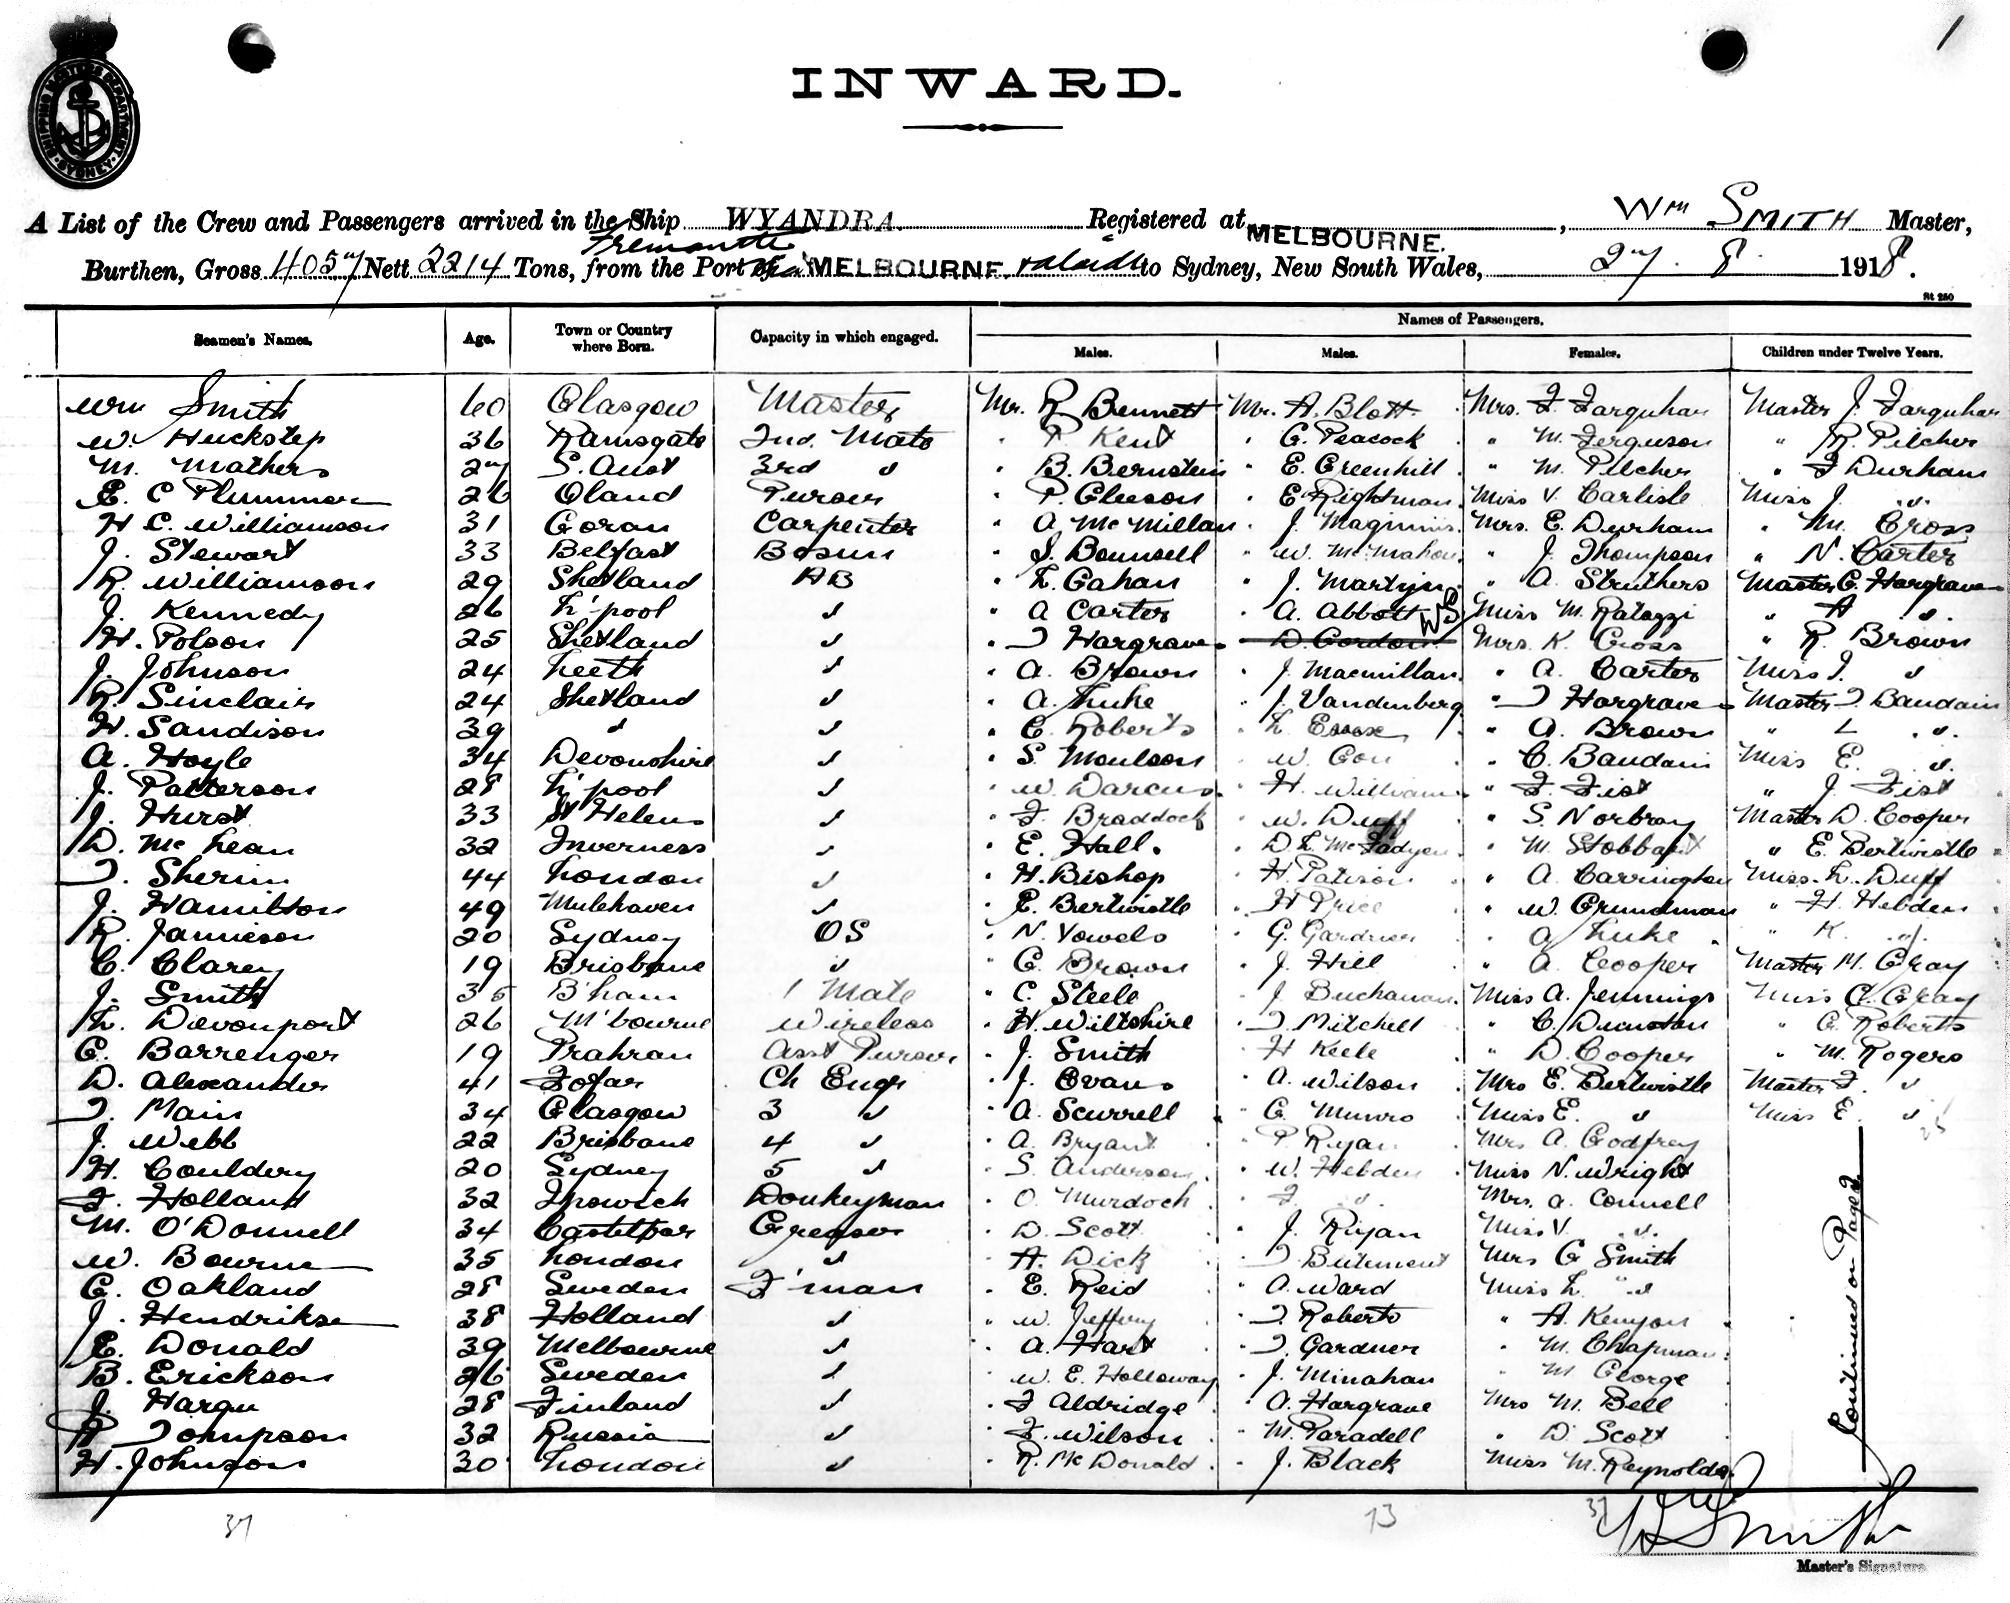 1
SHIPPING MASTERS DEPARTMENT SYDNEY
INWARD.
A List of the Crew and Passengers arrived in the Ship WYANDRA. Registered at MELBOURNE. , Wm SMITH Master,
Burthen, Gross 4057 Nett 2214 Tons, from the Port Fremantle MELBOURNE to Sydney, New South Wales, 27. 8. 1918.
St 250
Names of Passengers.
Seamen's Names. Age. Town or Country where Born. Capacity in which engaged. Males. Males. Females. Children under Twelve Years.
Wm Smith 60 Glasgow Master Mr. R Bennett Mr. A. Blott Mrs. F. Farquhar Master J. Farquhar
W. Huckstep 36 Ramsgate 2nd. Mate " P. Kent " G. Peacock " M. Ferguson " R. Pilcher
M. Mathers 27 S. Aust 3rd " " B. Bernstein " E. Greenhill " M. Pilcher " F Durham
E. C Plummer 26 Oland Purser " P. Gleeson " E Rightman Miss V. Carlisle Miss J. "
H C. Williamson 31 Goran Carpenter " A. McMillan " J. Maginnis Mrs. E. Durham " M. Cross
J. Stewart 33 Belfast Bosun " J. Bounsell " W. McMahon " J. Thompson " N. Carter
R. Williamson 29 Shetland AB " L. Cahan " J. Martijn " A. Struthers Master C. Hargrave
J. Kennedy 26 L'pool " " A Carter " A. Abbott WS Miss M. Ratazzi " A "
H. Polson 25 Shetland " " T Hargrave " D. Gordon Mrs. K. Cross " R. Brown
J. Johnson 24 Leeth " " A. Brown " J. Macmillan " A. Carter Miss J. "
R. Sinclair 24 Shetland " " A. Luke " J. Vandenberg " T Hargrave Master T Baudain
H. Sandison 39 " " " C. Roberts " L. Essex " A. Brown " L "
A. Hoyle 34 Devonshire " " S. Moulson " W. Gou " C. Baudain Miss E. "
J. Patterson 28 L'pool " " W. Darcus " H. William " F. Fist " J. Fist
J. Hurst 33 St Helens " " F. Braddock " W. Duff " S. Norbray Master D. Cooper
D. McLean 32 Inverness " " E. Hall " D. L. McFadyen " M. Stobbart " E. Bertwistle
T. Sherin 44 London " " H. Bishop " H. Patison " A. Carrington Miss L. Duff
J. Hamilton 49 Mulehaven " " E. Bertwistle " H Price " W. Grundman " H. Hebden
R. Jamieson 20 Sydney OS " N. Vowels " G. Gardner " A Luke " K. "
C. Clarey 19 Brisbane " " G. Brown " J. Hill " A. Cooper Master M. Gray
J. Smith 35 B'ham 1 Mate " C. Steele " J Buchanan Miss A. Jennings Miss C. Gray
L. Devonport 26 M'bourne Wireless " H. Wiltshire " T. Mitchell " C. Dunstan " G. Roberts
G. Barrenger 19 Prahran Asst Purser " J. Smith " H Keele " D. Cooper " M. Rogers
D. Alexander 41 Ch Engr " J. Evans " A. Wilson Mrs E. Bertwistle Master F. "
T. Main 34 Glasgow 3 " " A. Scurrell " G. Munro Miss E. " Miss E "
J. Webb 22 Brisbane 4 " " A. Bryant " P Ryan Mrs A. Godfrey
H. Couldery 20 Sydney 5 " " S. Anderson " W. Hebden Miss N. Wright
F. Holland 32 Ipswich Donkeyman " O. Murdoch " F. " Mrs. A. Connell
M. O'Donnell 34 Castelbar Greaser " D. Scott " J. Ryan Miss V "
W. Bourne 35 London " " A. Dick " T. Butement Mrs G Smith
C. Oakland 28 Sweden F'man " E. Reid " A. Ward Miss L. "
J. Hendrikse 38 Holland " " W. Jeffery " T. Roberts " A. Kenyon
E. Donald 39 Melbourne " " A. Hart " T. Gardner " M. Chapman
B. Erickson 26 Sweden " " W. E. Holloway " J. Minahan " M George
J. Hargu 28 Finland " " F Aldridge " A. Hargrave Mrs M. Bell
Tompson 32 Russia " " F. Wilson " M. Paradell " D. Scott
H. Johnson 30 London " " R. McDonald " J. Black Miss M. Reynolds
Continued on Page 2
37 73 37
Wm Smith
Master's Signature